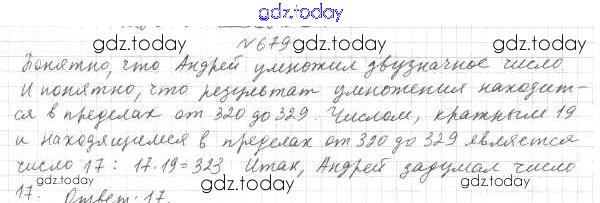 gdz.today
№679
gdz.today gdz.today
Понятно, что Андрей умножил двузначное число
И понятно, что результат умножения находит-
gdz.today gdz.today
ся в пределах от 320 до 329. Числом, кратным 19
и находящимся в пределах от 320 до 329 является
gdz.today gdz.today
число 17: 17·19=323 Итак, Андрей задумал число
gdz.today gdz.today
17. Ответ: 17.